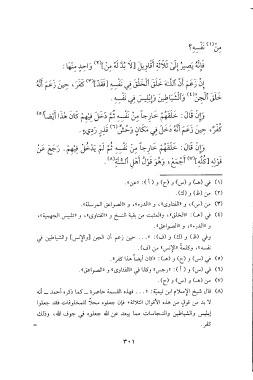 من(١) نفسه؟
فإنه يصير إلى ثلاثة أقاويل [لا بد له من](٢) واحد منها:
إن زعم أن الله خلق الخلق في نفسه [فقد](٣) كفر، حين زعم أنه
خلق الجن(٤) والشياطين وإبليس في نفسه.
وإن قال: خلقهم خارجاً من نفسه ثم دخل فيهم كان هذا أيضاً(٥)
كفر، حين زعم أنه دخل في مكان وحش(٦) قذر رديء.
وإن قال: خلقهم خارجاً من نفسه ثم لم يدخل فيهم. رجع عن
قوله [كله](٧) أجمع، وهو قول أهل السنة(٨).
(١) في (هـ) و (س) و (ج) و (أ): «عن».
(٢) من (ظ) و (ك).
(٣) من (س)، و «الفتاوى»، و «الدرء»، و «الصواعق المرسلة».
(٤) في (هـ): «الخلق»، والمثبت من بقية النسخ و «الفتاوى»، و «تلبيس الجهمية»،
و «الدرء»، و «الصواعق».
وفي (ظ) و (ك) و (ف): «... حين زعم أن الجن [والإنس] والشياطين في
نفسه»، وكلمة «الإنس» من (ف).
(٥) في (س) و (ج) و (هـ): «كان أيضاً هذا كفر».
(٦) في (س) و (أ): «رجس» وكذا في «الفتاوى» و «الصواعق».
(٧) من (هـ) و (س) و (ج).
(٨) قال شيخ الإسلام ابن تيمية: «... فهذه القسمة حاصرة ــ كما ذكره أحمد ــ أنه
لا بد من قول من هذه الأقوال الثلاثة» فإن جعلوه محلاً للمخلوقات فقد جعلوا
إبليس والشياطين والنجاسات مما يبعد عن الله جعلوه في جوف الله، وذلك
كفر.
٣٠١